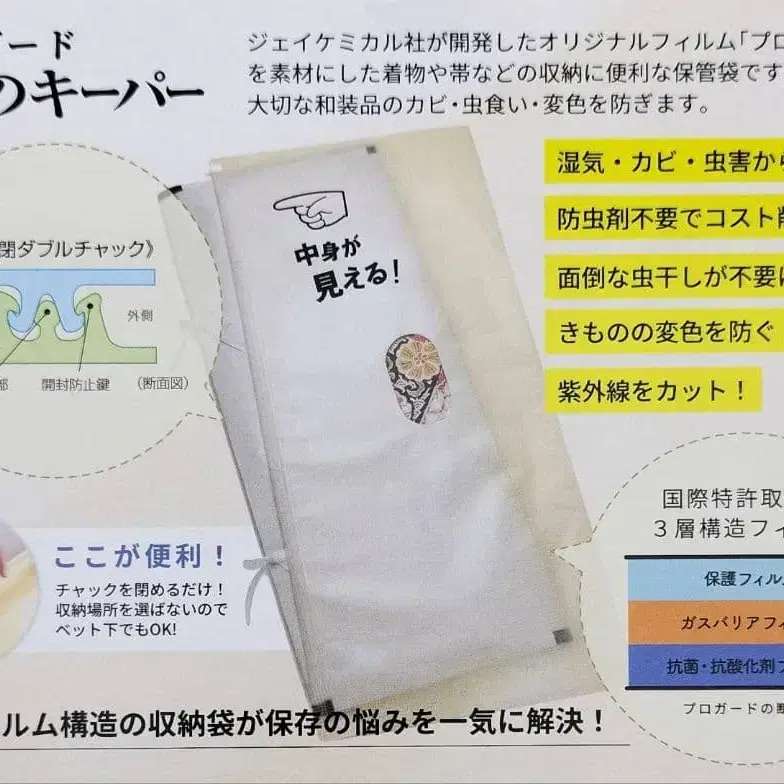 ード
のキーパー
ジェイケミカル社が開発したオリジナルフィルム「プロ
を素材にした着物や帯などの収納に便利な保管袋です
大切な和装品のカビ・虫食い・変色を防ぎます。
湿気・カビ・虫害から
防虫剤不要でコスト削
面倒な虫干しが不要に
きものの変色を防ぐ
紫外線をカット！
中身が
見える！
閉ダブルチャック》
外側
部
開封防止鍵
（断面図）
ここが便利！
チャックを閉めるだけ！
収納場所を選ばないので
ベット下でもOK!
国際特許取
３層構造フィ
保護フィル
ガスバリアフィ
抗菌・抗酸化剤フ
プロガードの断
ルム構造の収納袋が保存の悩みを一気に解決！